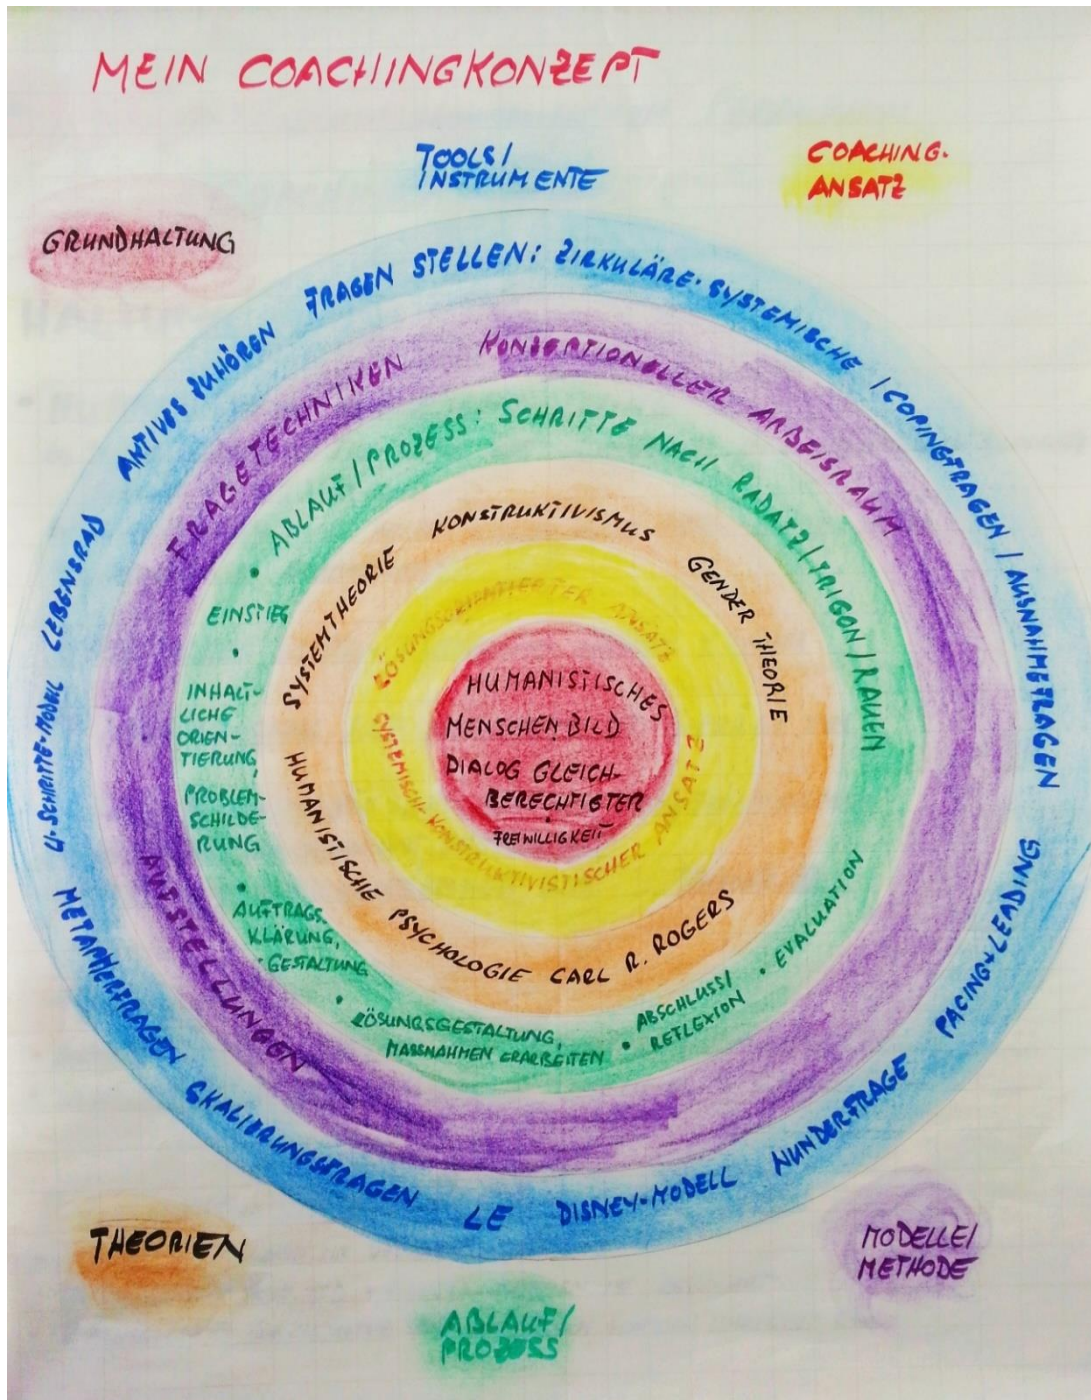 MEIN COACHINGKONZEPT
TOOLS/
INSTRUMENTE
COACHING-
ANSATZ
GRUNDHALTUNG
AKTIVES ZUHÖREN
FRAGEN STELLEN: ZIRKULÄRE-SYSTEMISCHE / COPINGFRAGEN / AUSNAHMEFRAGEN
PACING+LEADING
WUNDERFRAGE
DISNEY-MODELL
LE
SKALIERUNGSFRAGEN
METAPHERFRAGEN
4-SCHRITTE-MODELL
LEBENSRAD
FRAGETECHNIKEN
KONZEPTIONELLER ARBEISRAUM
AUFSTELLUNGEN
ABLAUF/PROZESS: SCHRITTE NACH RADATZ/TRIGON/RAUEN
• EINSTIEG
• INHALT-
LICHE
ORIEN-
TIERUNG,
PROBLEM-
SCHILDE-
RUNG
• AUFTRAGS-
KLÄRUNG,
-GESTALTUNG
• LÖSUNGSGESTALTUNG,
MASSNAHMEN ERARBEITEN
• ABSCHLUSS/
REFLEXION
• EVALUATION
SYSTEMTHEORIE
KONSTRUKTIVISMUS
GENDER THEORIE
HUMANISTISCHE PSYCHOLOGIE CARL R. ROGERS
LÖSUNGSORIENTIERTER ANSATZ
SYSTEMISCH-KONSTRUKTIVISTISCHER ANSATZ
HUMANISTISCHES
MENSCHENBILD
DIALOG GLEICH-
BERECHTIGTER
FREIWILLIGKEIT
THEORIEN
MODELLE/
METHODE
ABLAUF/
PROZESS